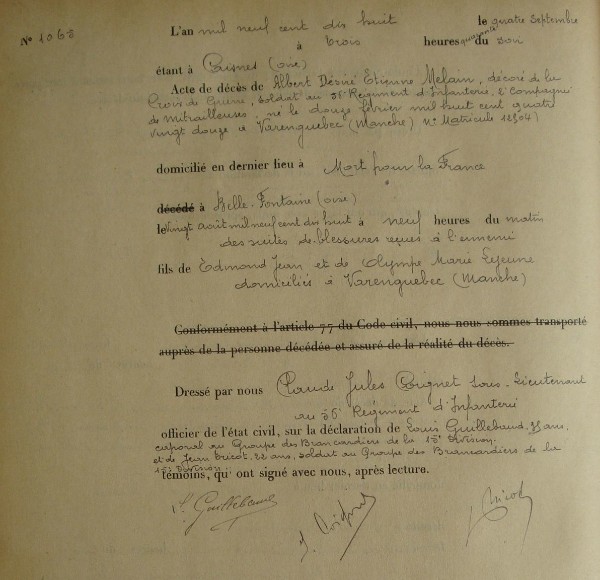 N° 1068
L'an mil neuf cent dix huit le quatre Septembre
à trois heures quarante du soir
étant à Caisnes (oise)
Acte de décès de Albert Désiré Etienne Melain, décoré de la
Croix de Guerre, soldat au 36e Régiment d'Infanterie, 2e Compagnie
de mitrailleuses, né le douze février mil huit cent quatre
vingt douze à Varenguebec (Manche) (N° Matricule 12504)
domicilié en dernier lieu à Mort pour la France
décédé à Belle-Fontaine (oise)
le vingt août mil neuf cent dix huit à neuf heures du matin
des suites de blessures reçues à l'ennemi
fils de Edmond Jean et de Olympe Marie Lejeune
domiciliés à Varenguebec (Manche)
Conformément à l'article 77 du Code civil, nous nous sommes transporté
auprès de la personne décédée et assuré de la réalité du décès.
Dressé par nous Claude Jules Coignet Sous-Lieutenant
au 36e Régiment d'Infanterie
officier de l'état civil, sur la déclaration de Louis Guillebaud, ans,
caporal au Groupe des Brancardiers de la Division
et de Jean Tricot, 22 ans, soldat au Groupe des Brancardiers de la
Division
témoins, qui ont signé avec nous, après lecture.
L. Guillebaud
J. Coignet
J. Tricot